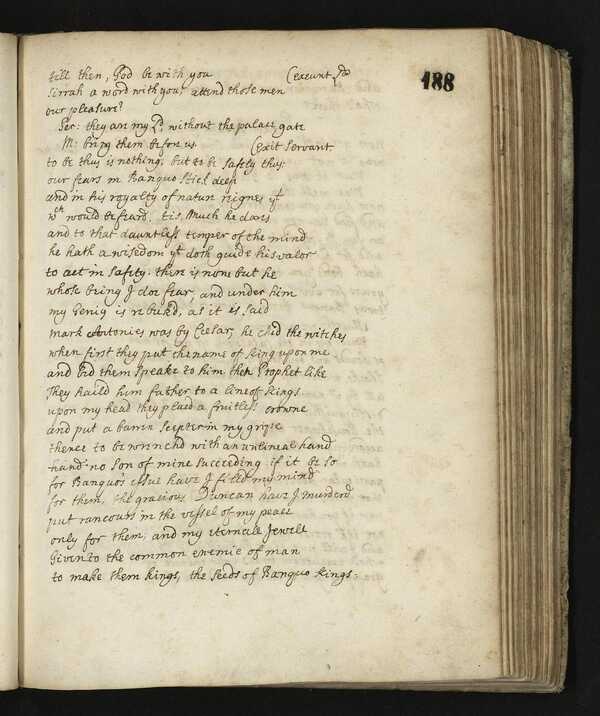 till then, God be with you (exeunt
188
Sirrah a word with you, attend those men
our pleasure?
Ser: they are my Ld. without the palace gate
M: bring them before us. (Exit Servant
to be thus is nothing, but to be safely thus:
our fears in Banquo stick deep
and in his royalty of nature reignes yt
wch would be feard, tis Much he dares
and to that dauntless temper of the mind
he hath a wisedom yt doth guide his valor
to act in safety. there is none but he
whose being I doe fear, and under him
my Geniq is rebukd, as it is said
Mark Antonies was by Cæsar, he chid the witches
when first they put the name of King upon me
and bid them speake to him then Prophet like
They haild him father to a line of kings
upon my head they placd a fruitless crowne
and put a barrin scepter in my gripe
thence to be wrenchd with an unlineal hand
hand no Son of mine succeeding if it be so
for Banquo's issue have I filed my mind
for them, the gracious Duncan have I murderd
put rancours in the vessel of my peace
only for them, and my eternall Jewell
Given to the common enemie of man
to make them kings, the seeds of Banquo kings.